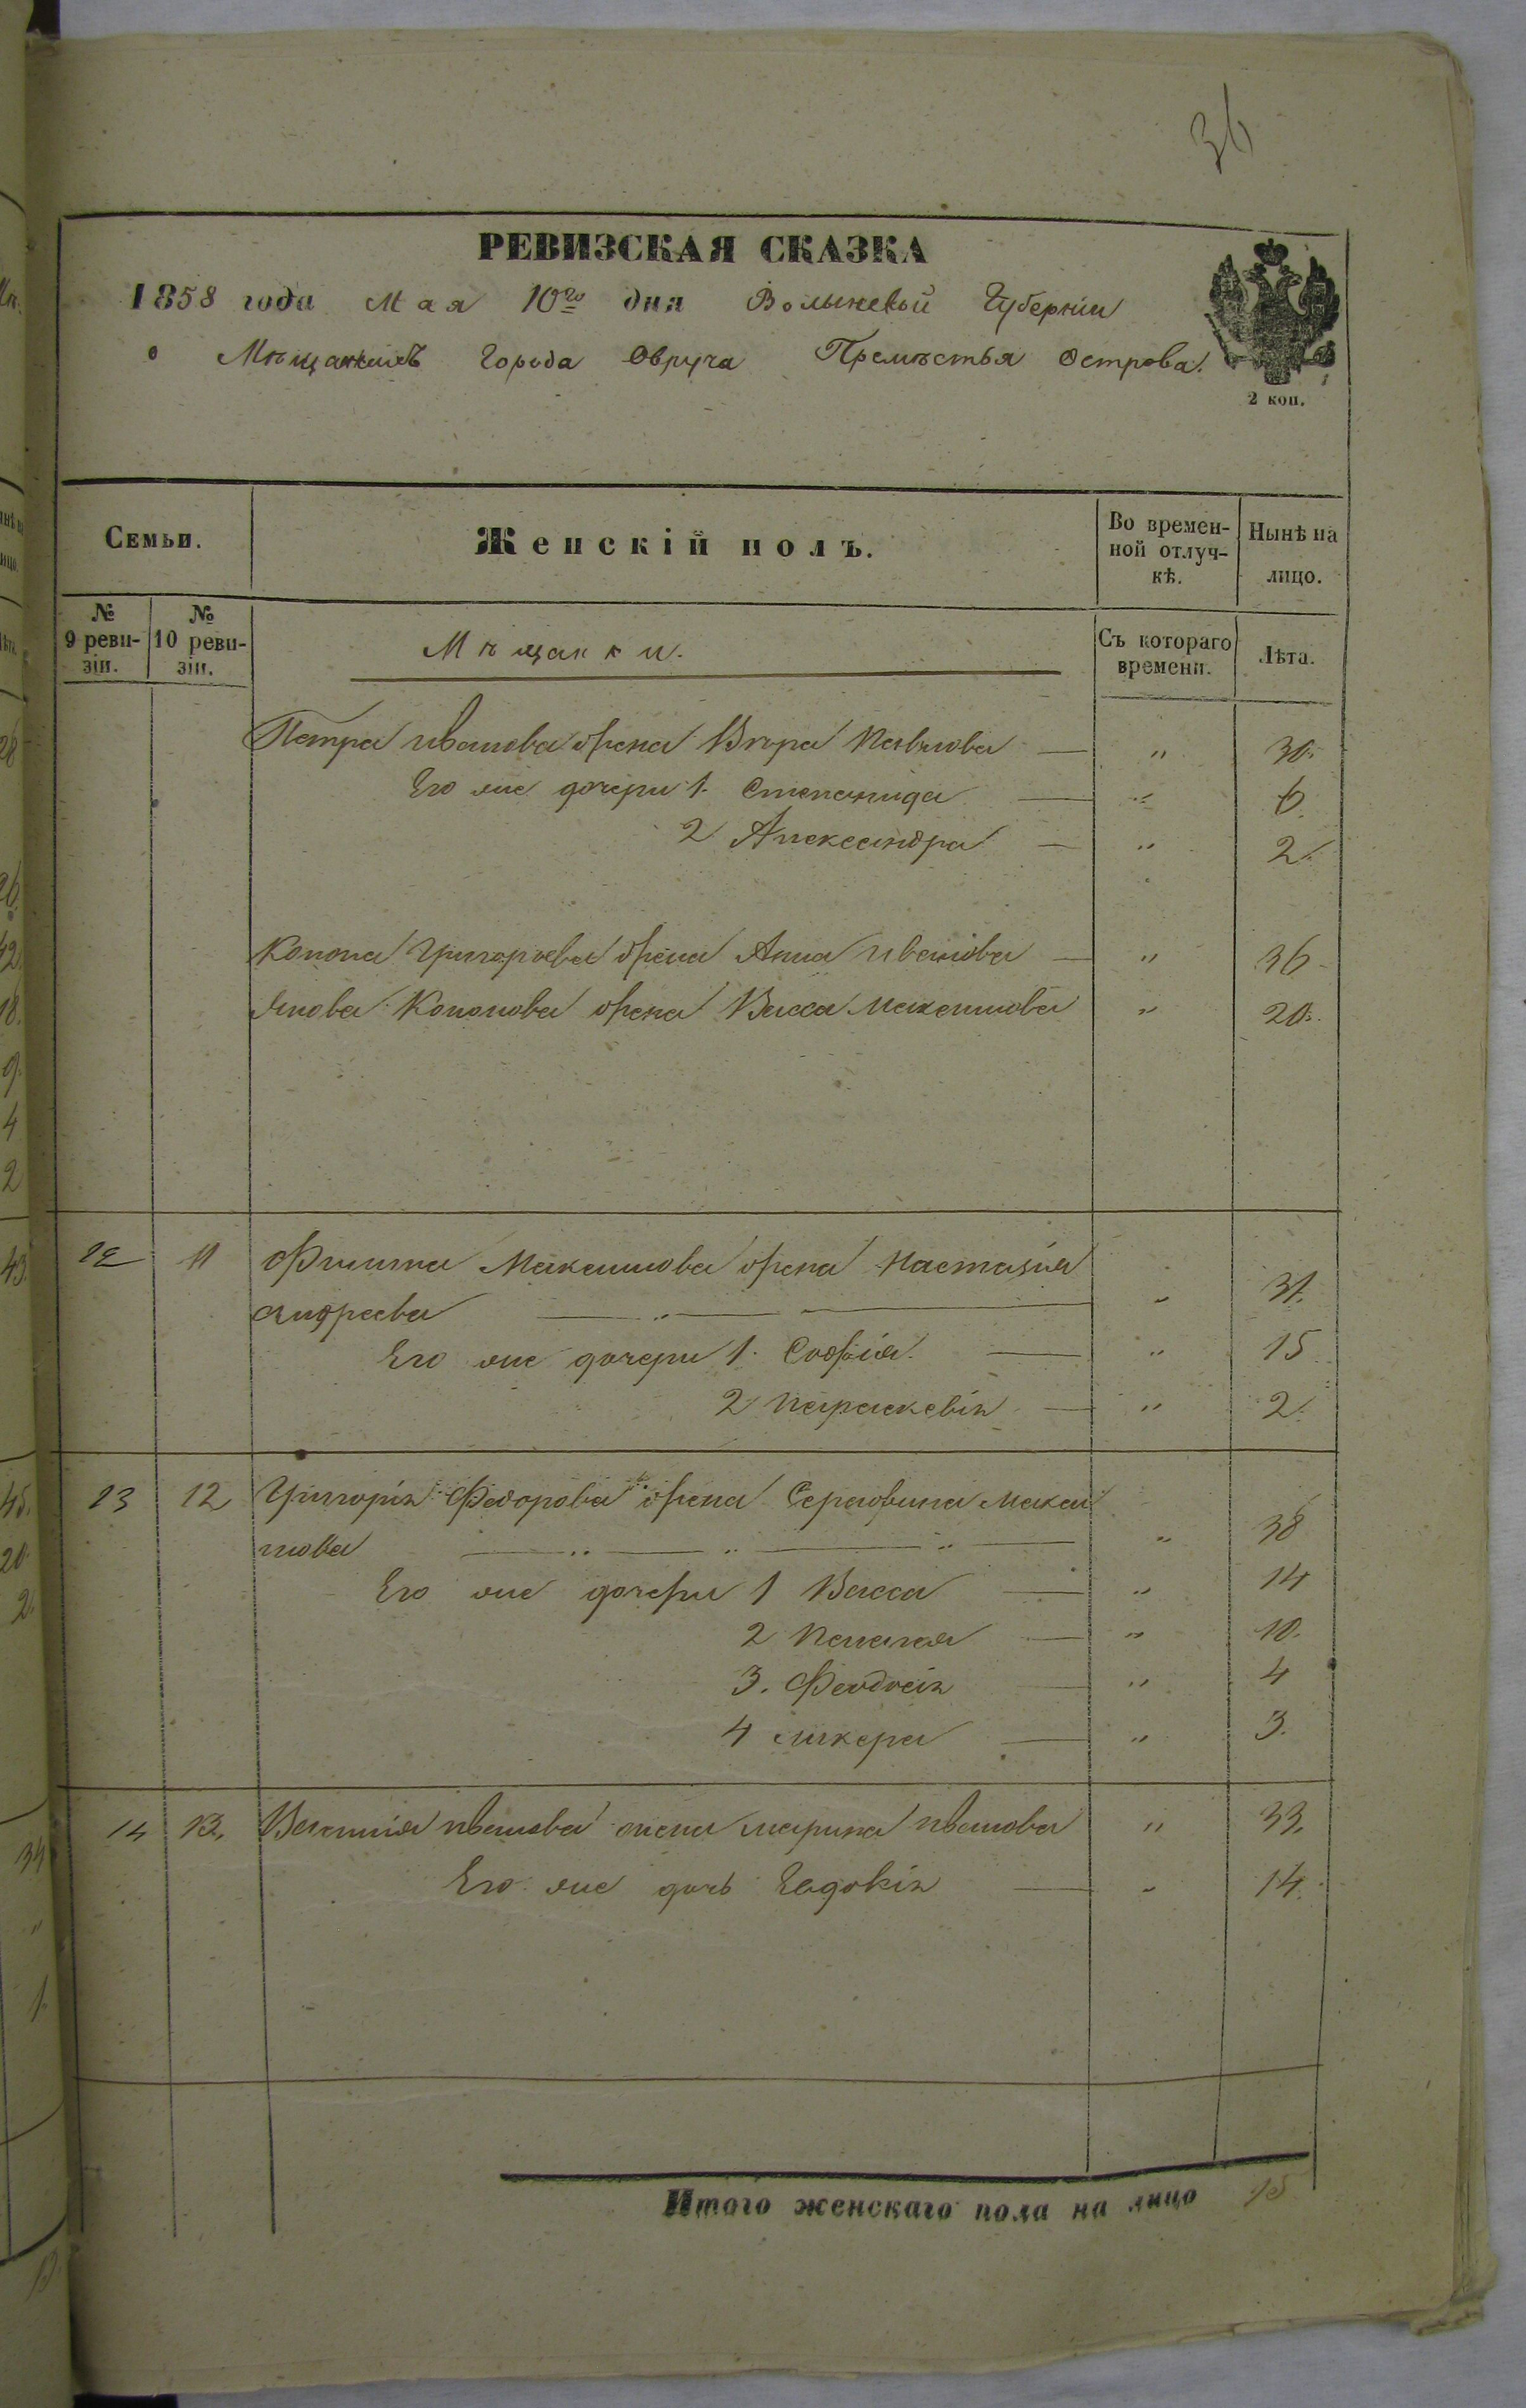 36
РЕВИЗСКАЯ СКАЗКА
1858 года Мая 10го дня Волынской Губернiи
о Мѣщанкахъ Города Овруча Премѣстья Острова.
2 коп.
Семьи.
Женскiй полъ.
Во времен-
ной отлуч-
кѣ.
Нынѣ на
лицо.
№
9 реви-
зiи.
№
10 реви-
зiи.
Мѣщанки.
Съ котораго
времени.
Лѣта.
Петра Иванова жена Вѣра Павлова — " 30.
Его же дочери 1. Степанида — " 6.
2 Александра — " 2.
Конона Григорьева жена Анна Иванова — " 36
Якова Кононова жена Васса Максимова " 20.
12 11 Филипа Максимова жена Настазiя
Андреева — " — " 31.
Его же дочери 1. Софiя. — " 15
2 Параскевiя — " 2.
13 12 Григорiя Федорова жена Серафима Макси
мова — " — " — " — " 38
Его же дочери 1 Васса — " 14
2 Пелагея — " 10.
3. Феодосiя — " 4
4 Ликера — " 3.
14 13. Василiя Иванова жена Марина Иванова " 33.
Его же дочь Евдокiя — " 14.
Итого женскаго пола на лицо 15